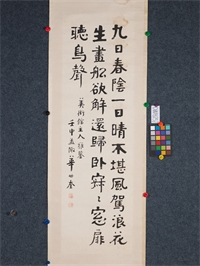 九日春陰一日晴不堪風駕浪花
生畫船欲解還歸卧寂〻窓扉
聽鳥聲
主人雅鑒
壬申孟 華世奎